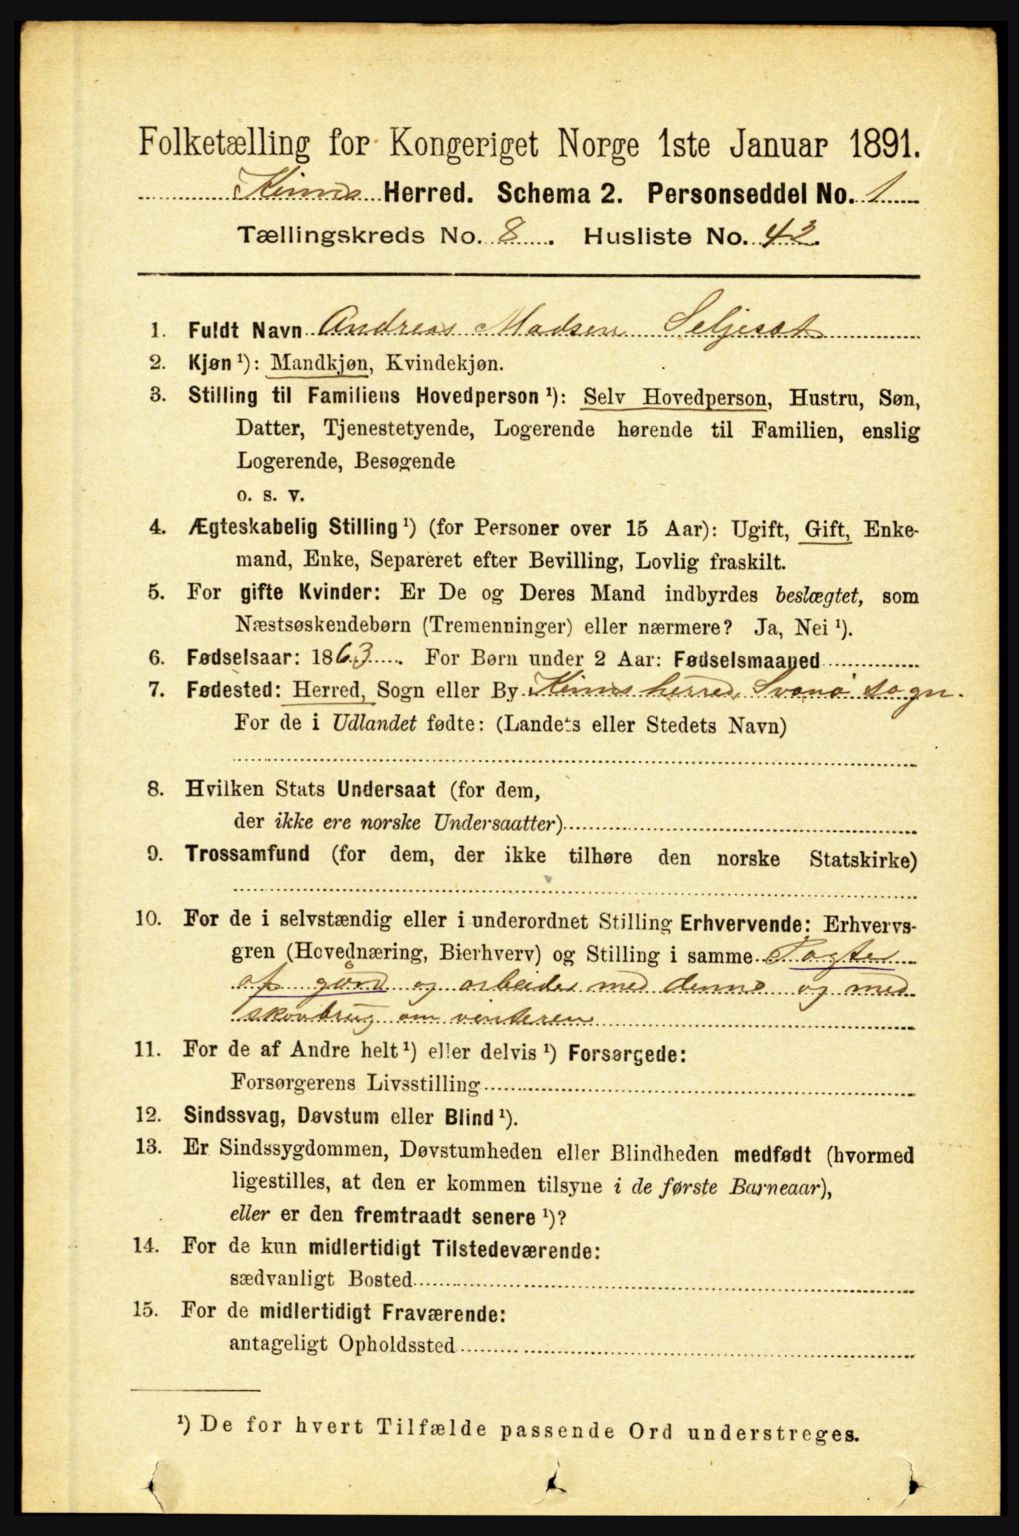 Folketælling for Kongeriget Norge 1ste Januar 1891.
Kinns Herred. Schema 2. Personseddel No. 1
Tællingskreds No. 8. Husliste No. 43.
1. Fuldt Navn Andreas Madsen Seljesæt
2. Kjøn ¹): Mandkjøn, Kvindekjøn.
3. Stilling til Familiens Hovedperson ¹): Selv Hovedperson, Hustru, Søn,
Datter, Tjenestetyende, Logerende hørende til Familien, enslig
Logerende, Besøgende
o. s. v.
4. Ægteskabelig Stilling ¹) (for Personer over 15 Aar): Ugift, Gift, Enke-
mand, Enke, Separeret efter Bevilling, Lovlig fraskilt.
5. For gifte Kvinder: Er De og Deres Mand indbyrdes beslægtet, som
Næstsøskendebørn (Tremenninger) eller nærmere? Ja, Nei ¹).
6. Fødselsaar: 1863. For Børn under 2 Aar: Fødselsmaaned
7. Fødested: Herred, Sogn eller By Kinns herred, Svanø sogn.
For de i Udlandet fødte: (Landets eller Stedets Navn)
8. Hvilken Stats Undersaat (for dem,
der ikke ere norske Undersaatter)
9. Trossamfund (for dem, der ikke tilhøre den norske Statskirke)
10. For de i selvstændig eller i underordnet Stilling Erhvervende: Erhvervs-
gren (Hovednæring, Bierhverv) og Stilling i samme
af gård og arbeider med denne og med
skovbrug om vinteren
11. For de af Andre helt ¹) eller delvis ¹) Forsørgede:
Forsørgerens Livsstilling
12. Sindssvag, Døvstum eller Blind ¹).
13. Er Sindssygdommen, Døvstumheden eller Blindheden medfødt (hvormed
ligestilles, at den er kommen tilsyne i de første Barneaar),
eller er den fremtraadt senere ¹)?
14. For de kun midlertidigt Tilstedeværende:
sædvanligt Bosted
15. For de midlertidigt Fraværende:
antageligt Opholdssted
¹) De for hvert Tilfælde passende Ord understreges.